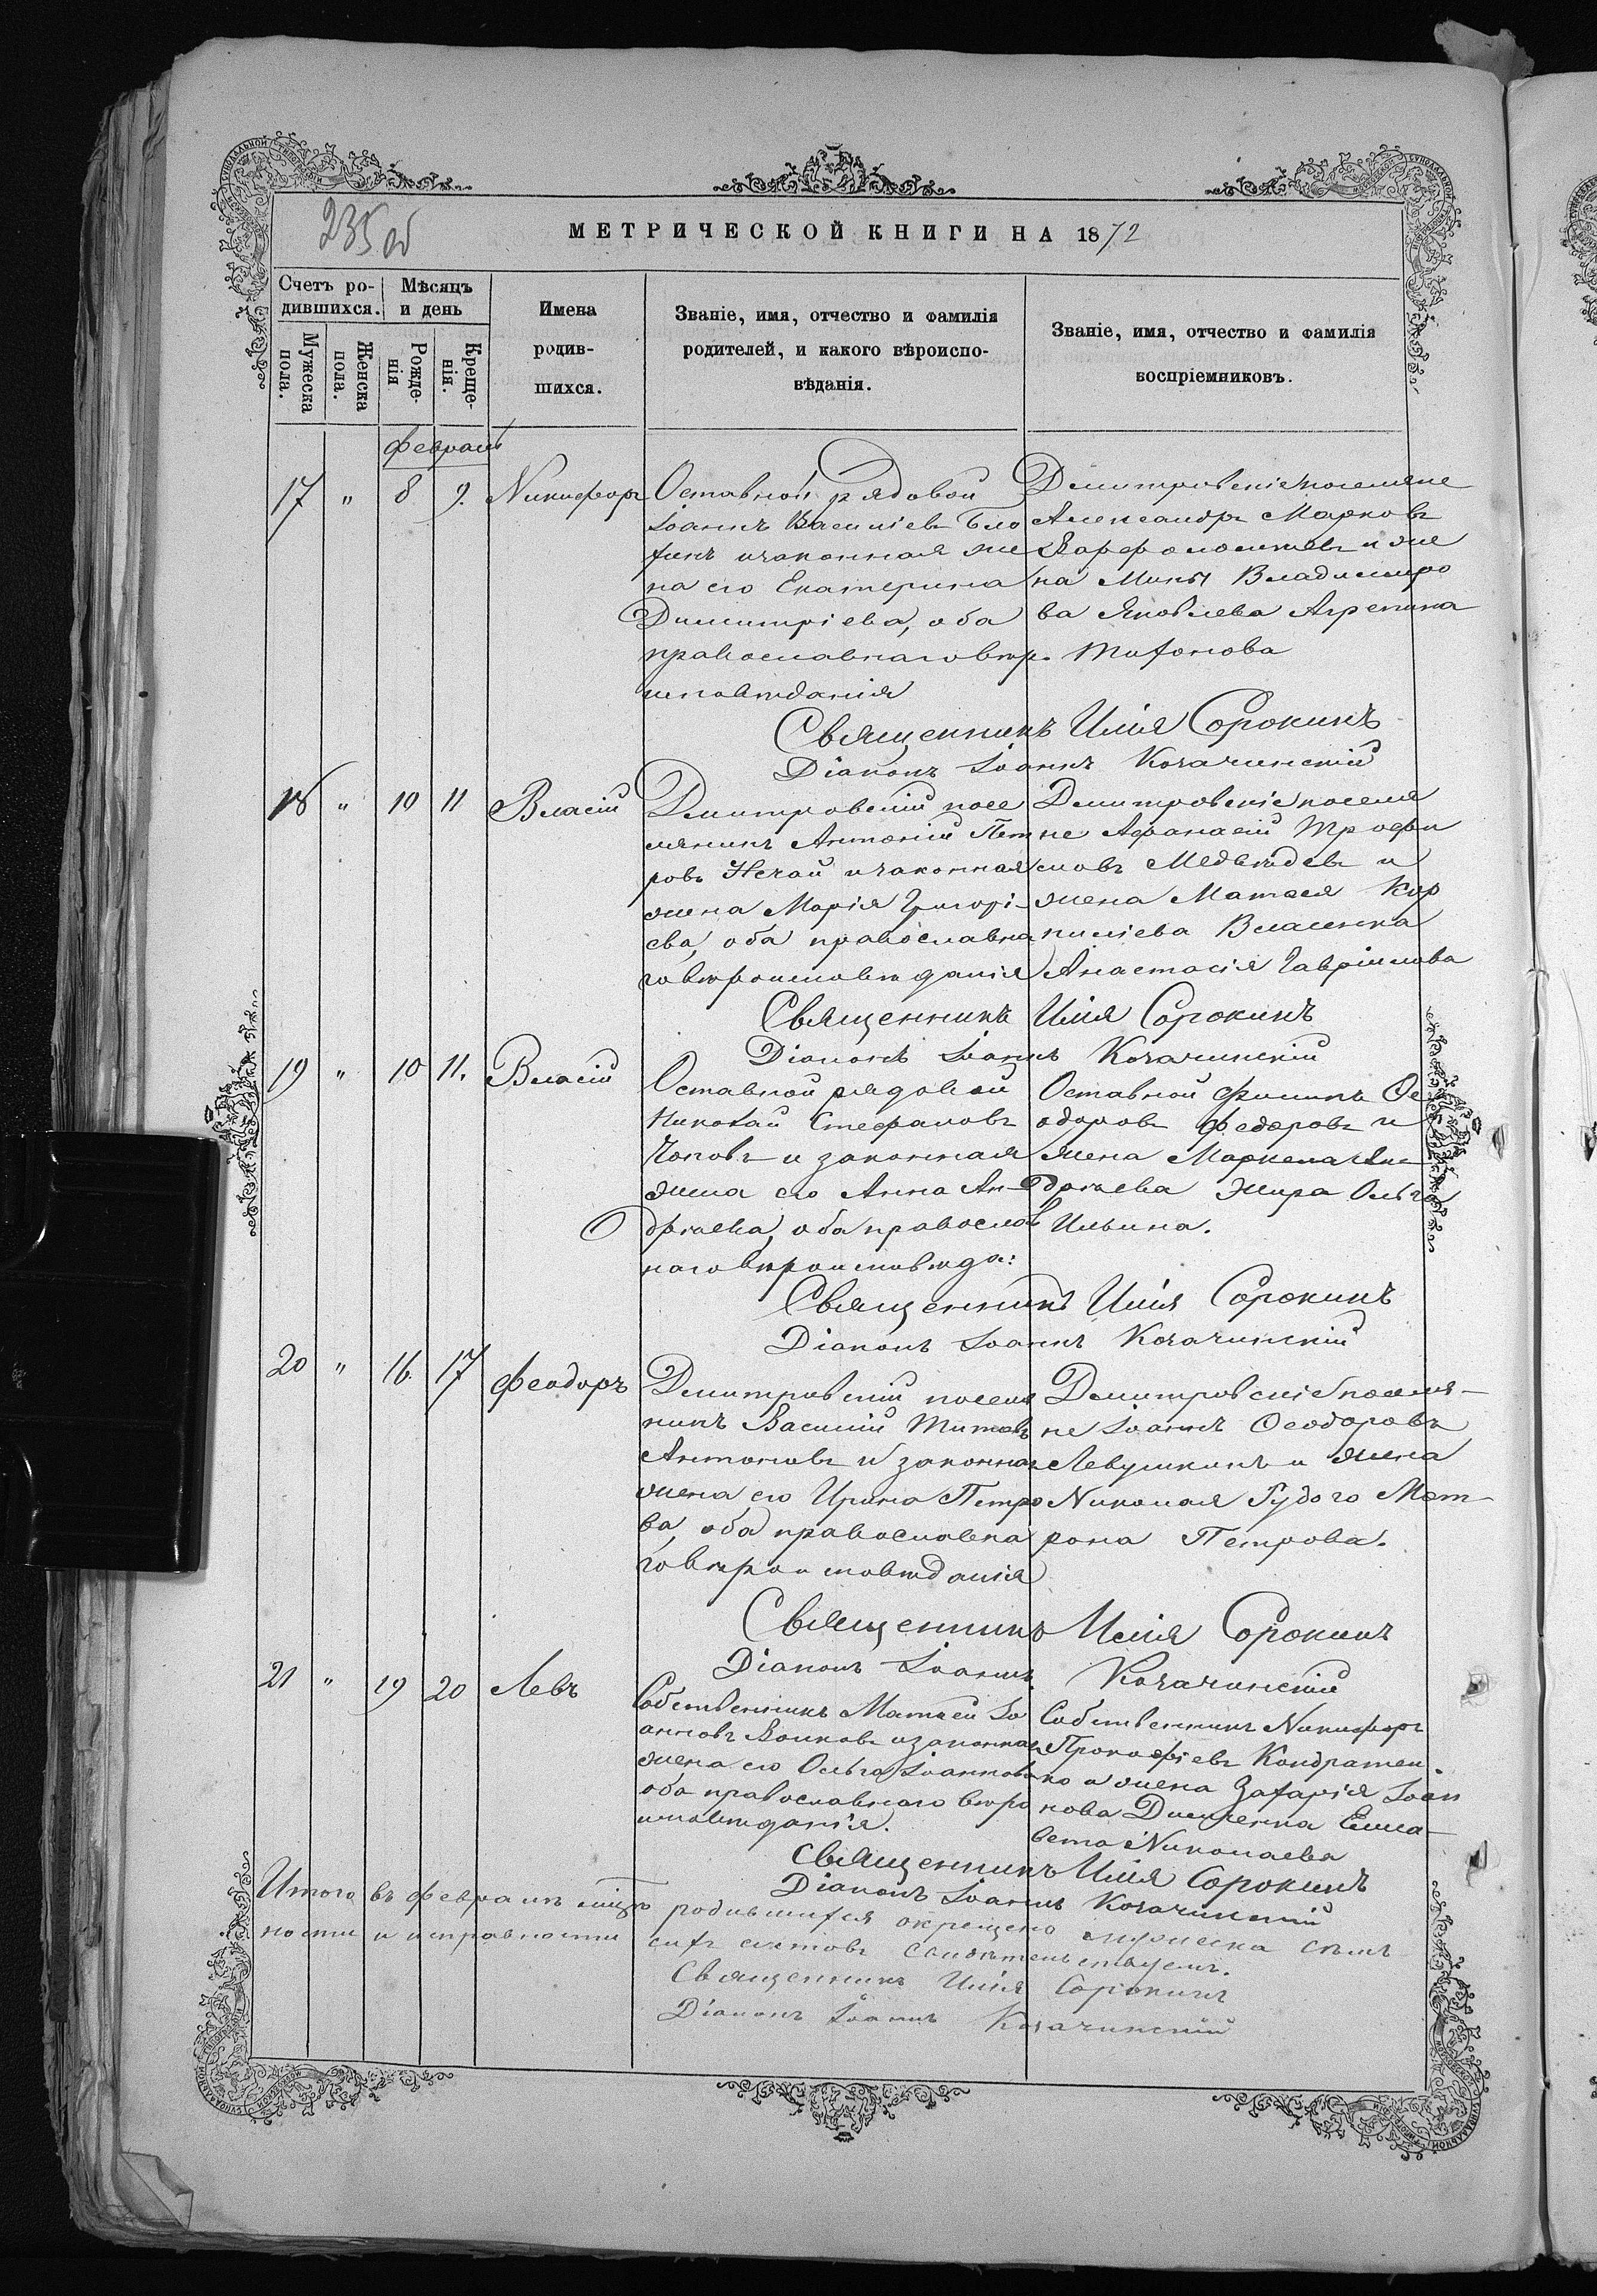 235 об
МЕТРИЧЕСКОЙ КНИГИ НА 1872
Счетъ ро-
дившихся.
Мѣсяцъ
и день
Мужеска
пола.
Женска
пола.
Рожде-
нія
Креще-
нія.
Имена
родив-
шихся.
Званіе, имя, отчество и фамилія
родителей, и какого вѣроиспо-
вѣданія.
Званіе, имя, отчество и фамилія
воспріемниковъ.
Февраль
17 " 8 9. Никифоръ
Оставной рядовой
Іоаннъ Василіевъ Бло
хинъ и законная же
на его Екатерина
Димитріева, оба
православнаго вѣр.
исповѣданія
Дмитровскіе поселяне
Александръ Марковъ
Варфоломеевъ и же
на Мины Владимиро
ва Яковлева Агрепина
Тихонова
Священникъ Илія Сорокинъ
Діаконъ Іоаннъ Козачинскій
18 " 10 11 Власій
Дмитровскій посе
лянинъ Антоній Пет
ровъ Нечай и законная
жена Марія Григорі-
ева, оба православна
го вѣроисповѣданія
Дмитровскіе поселя
не Афанасій Трофи
мовъ Медвѣдевъ и
жена Матвея Кор
ниліева Власенка
Анастасія Гавріилова
Священникъ Илія Сорокинъ
Діаконъ Іоаннъ Козачинскій
19 " 10 11. Власій
Оставной рядовой
Николай Стефановъ
Поповъ и законная
жена его Анна Ан-
дреева, оба православ
наго вѣроисповѣда:
Оставной Филипъ Ѳе
одоровъ Федоровъ и
жена Маркела Ан-
дреева Жира Ольга
Ильина.
Священникъ Илія Сорокинъ
Діаконъ Іоаннъ Козачинскій
20 " 16. 17 Феодоръ
Дмитровскій поселя
нинъ Василій Титовъ
Антоновъ и законная
жена его Ирина Петро
ва, оба православна
го вѣроисповѣданія
Дмитровскіе поселя-
не Іоаннъ Ѳеодоровъ
Левушкинъ и жена
Николая Рудого Мат-
рона Петрова.
Священникъ Илія Сорокинъ
Діаконъ Іоаннъ Козачинскій
21 " 19 20 Левъ
Собственникъ Матвей Іо
анновъ Волковъ и законная
жена его Ольга Іоаннова
оба православнаго вѣро
исповѣданія.
Собственникъ Никифоръ
Прокофіевъ Кондратен-
ко и жена Захарія Іоан
нова Дияченка Елиса-
вета Николаева
Священникъ Илія Сорокинъ
Діаконъ Іоаннъ Козачинскій
Итого въ февралѣ мцѣ родившихся окрещено мужеска
ности и исправности сихъ актовъ свидѣтельствуемъ.
Священникъ Илія Сорокинъ
Діаконъ Іоаннъ Козачинскій